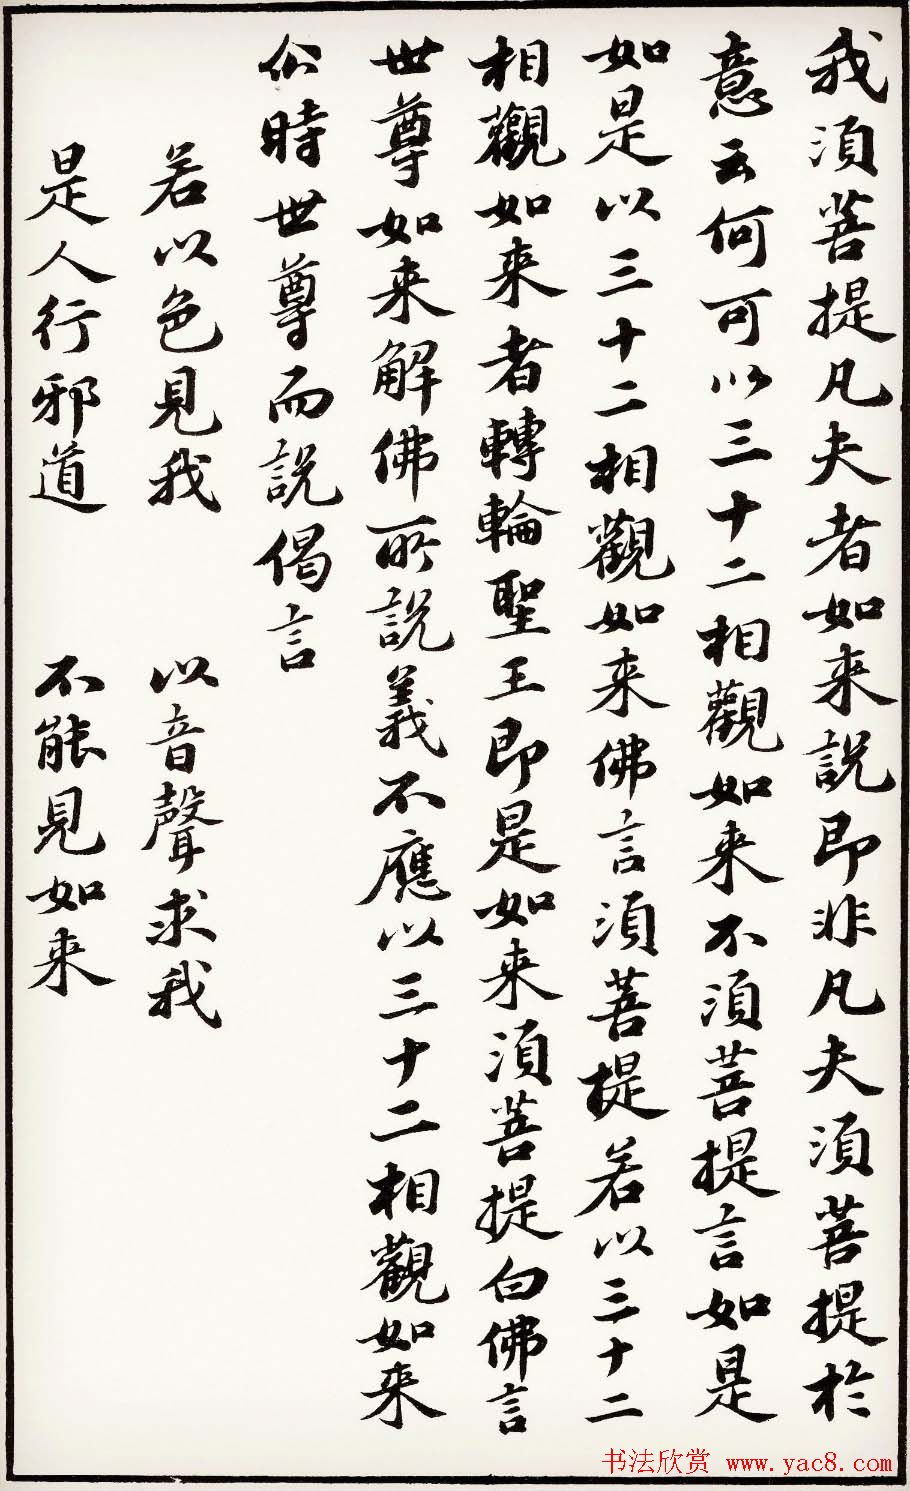 我須菩提凡夫者如来說即非凡夫須菩提於
意云何可以三十二相觀如来不須菩提言如是
如是以三十二相觀如来佛言須菩提若以三十二
相觀如来者轉輪聖王即是如来須菩提白佛言
世尊如来解佛所說義不應以三十二相觀如来
尒時世尊而說偈言
若以色見我　以音聲求我
是人行邪道　不能見如来
书法欣赏 www.yac8.com